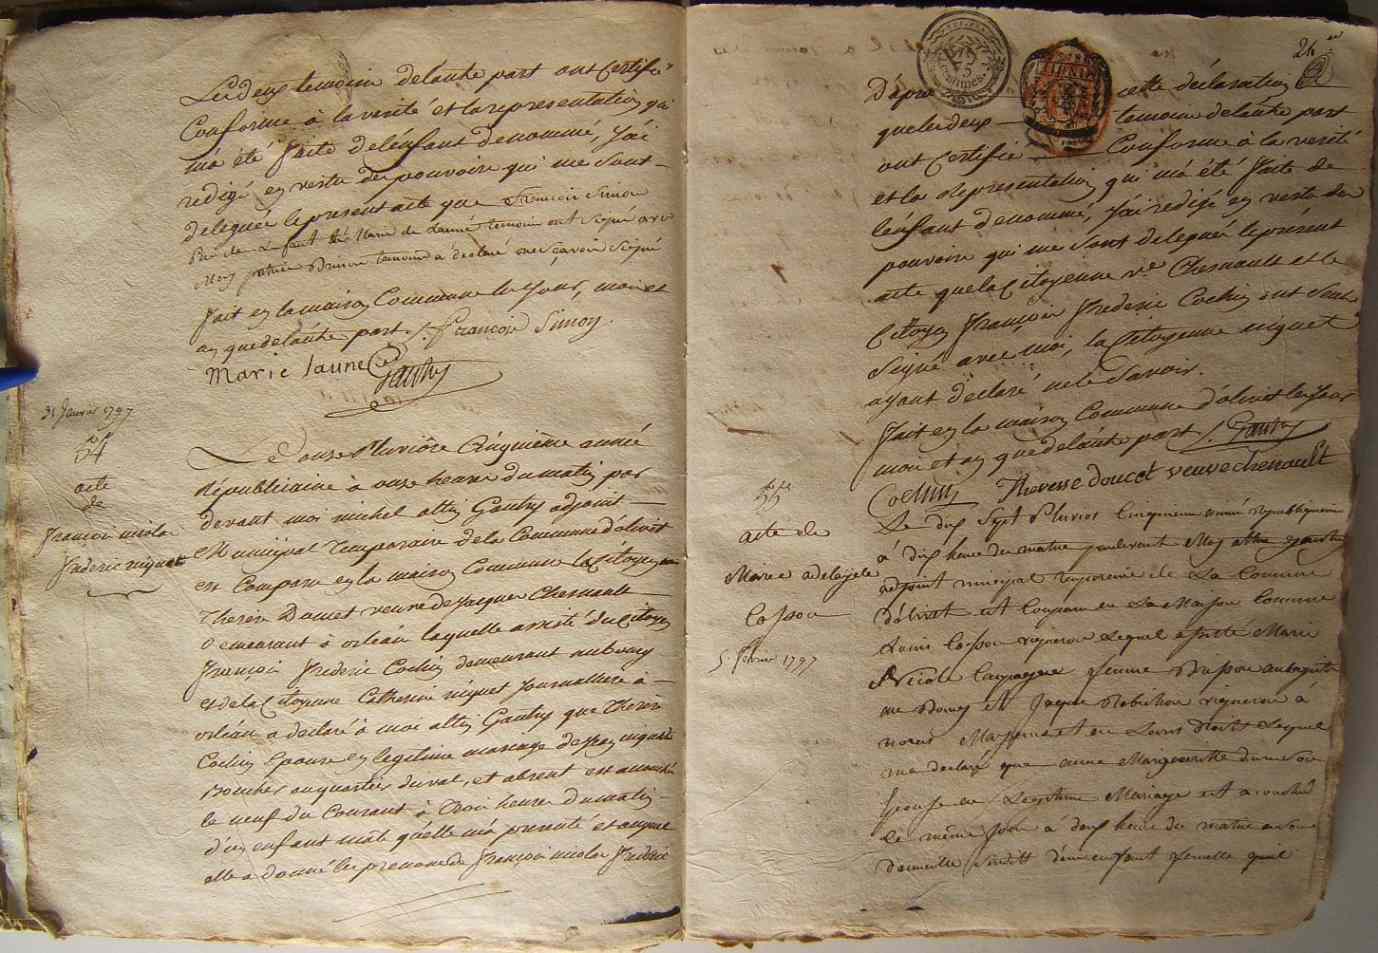 Les deux temoins delautre part ont Certifié
Conforme à la verité et la representation qui
ma été faite delenfant denommé, J'ai
redigé en vertu des pouvoirs qui me sont
delegués le present acte que françois Simon
Pere de Lenfant Marie Launé temoin ont Signé avec
Moy temoin a déclaré ne Sçavoir Signé
fait en la maison Commune les Jour, mois et
an que delautre part. françois Simon
Marie launé Gautry
31 Janvier 1797
54
acte
de
françois nicolas
frederic niquet
Le douze Pluviôse Cinquième année
Républicaine à onze heures du matin par
devant moi michel altin Gautry adjoint
Municipal temporaire de la Commune d'olivet
est Comparu en la maison Commune la Citoyenne
Therese Doucet veuve de Jacques Chesnault
Demeurant à orléans laquelle assisté du Citoyen
françois frederic Cochin demeurant au bourg
et de la Citoyenne Catherine niquet Journallière à
orléans a declaré à moi altin Gautry que Therese
Cochin Epouse en legitime mariage de Jean niquet
au quartier du val, et absent est accouchée
le neuf du Courant à trois heures du matin
d'un enfant mâle quelle ma presenté et auquel
elle a donné les prenoms de françois nicolas frederic
24
D'après cette déclaration
que les deux temoins delautre part
ont Certifié Conforme à la verité
et la representation qui ma été faite de
lenfant denommé, J'ai redigé en vertu des
pouvoirs qui me sont delegués le présent
acte que la Citoyenne ve Chesnault et le
Citoyen françois frederic Cochin ont Seul
Signé avec moi, la Citoyenne niquet
ayant déclaré ne le Savoir.
fait en la maison Commune d'olivet les Jour
mois et an que delautre part. Gautry
Cochin Therese doucet veuve chesnault
55
acte de
Marie adelayde
Cosson
5 février 1797
Le dix Sept Pluviose Cinquieme année republiquenne
à dix heure du matin pardevant Moy altin gautry
adjoint municipal temporaire de La Commune
d'olivet est Comparu en La Maison Commune
Louis Cosson vigneron Lequel assisté Marie
Nicole femme
Jaque Robichon vigneron à
Lequel
ma declaré que anne Margueritte
Epouse en Legitime Mariage est acouchée
Le même Jour à deux heure du matin en Son
domicille d'un enfant femelle quil